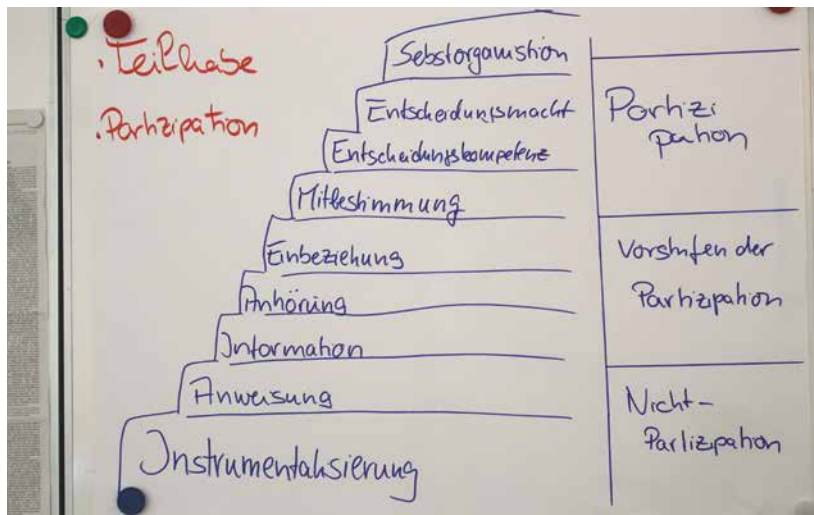 · Teilhabe
· Partizipation
Sebstorganistion
Entscheidungsmacht
Entscheidungskompetenz
Mitbestimmung
Einbeziehung
Anhörung
Information
Anweisung
Instrumentalisierung
Partizi
pation
Vorstufen der
Partizipation
Nicht-
Partizipation